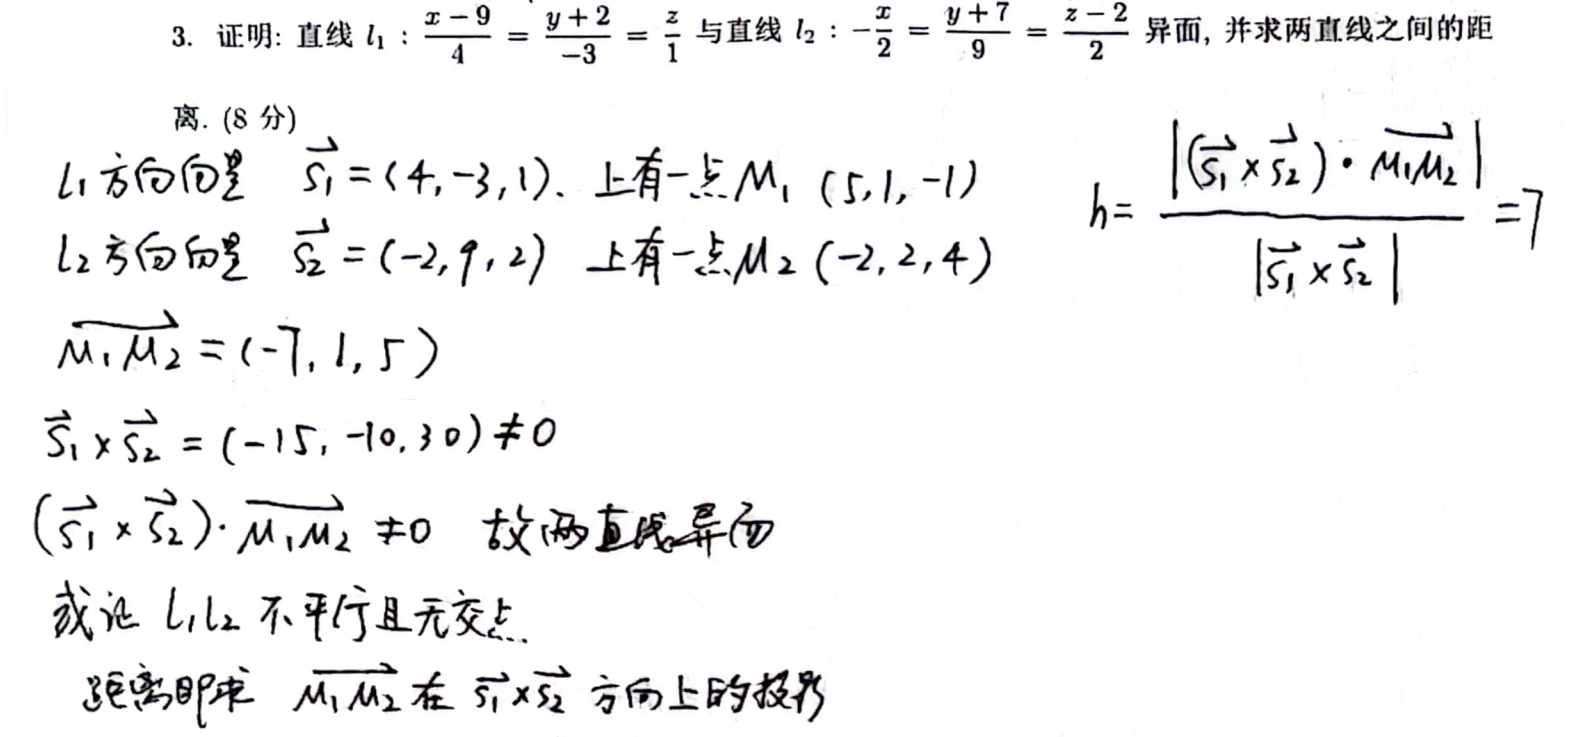 3. 证明: 直线 l₁ : (x − 9)/4 = (y + 2)/−3 = z/1 与直线 l₂ : −x/2 = (y + 7)/9 = (z − 2)/2 异面, 并求两直线之间的距
离. (8 分)
l₁方向向量 s₁ = (4, -3, 1). 上有一点 M₁ (5, 1, -1)
l₂方向向量 s₂ = (-2, 9, 2) 上有一点 M₂ (-2, 2, 4)
M₁M₂ = (-7, 1, 5)
s₁ × s₂ = (-15, -10, 30) ≠ 0
(s₁ × s₂) · M₁M₂ ≠ 0 故两直线异面
或证 l₁l₂ 不平行且无交点.
距离即求 M₁M₂ 在 s₁×s₂ 方向上的投影
h = |(s₁ × s₂) · M₁M₂| / |s₁ × s₂| = 7